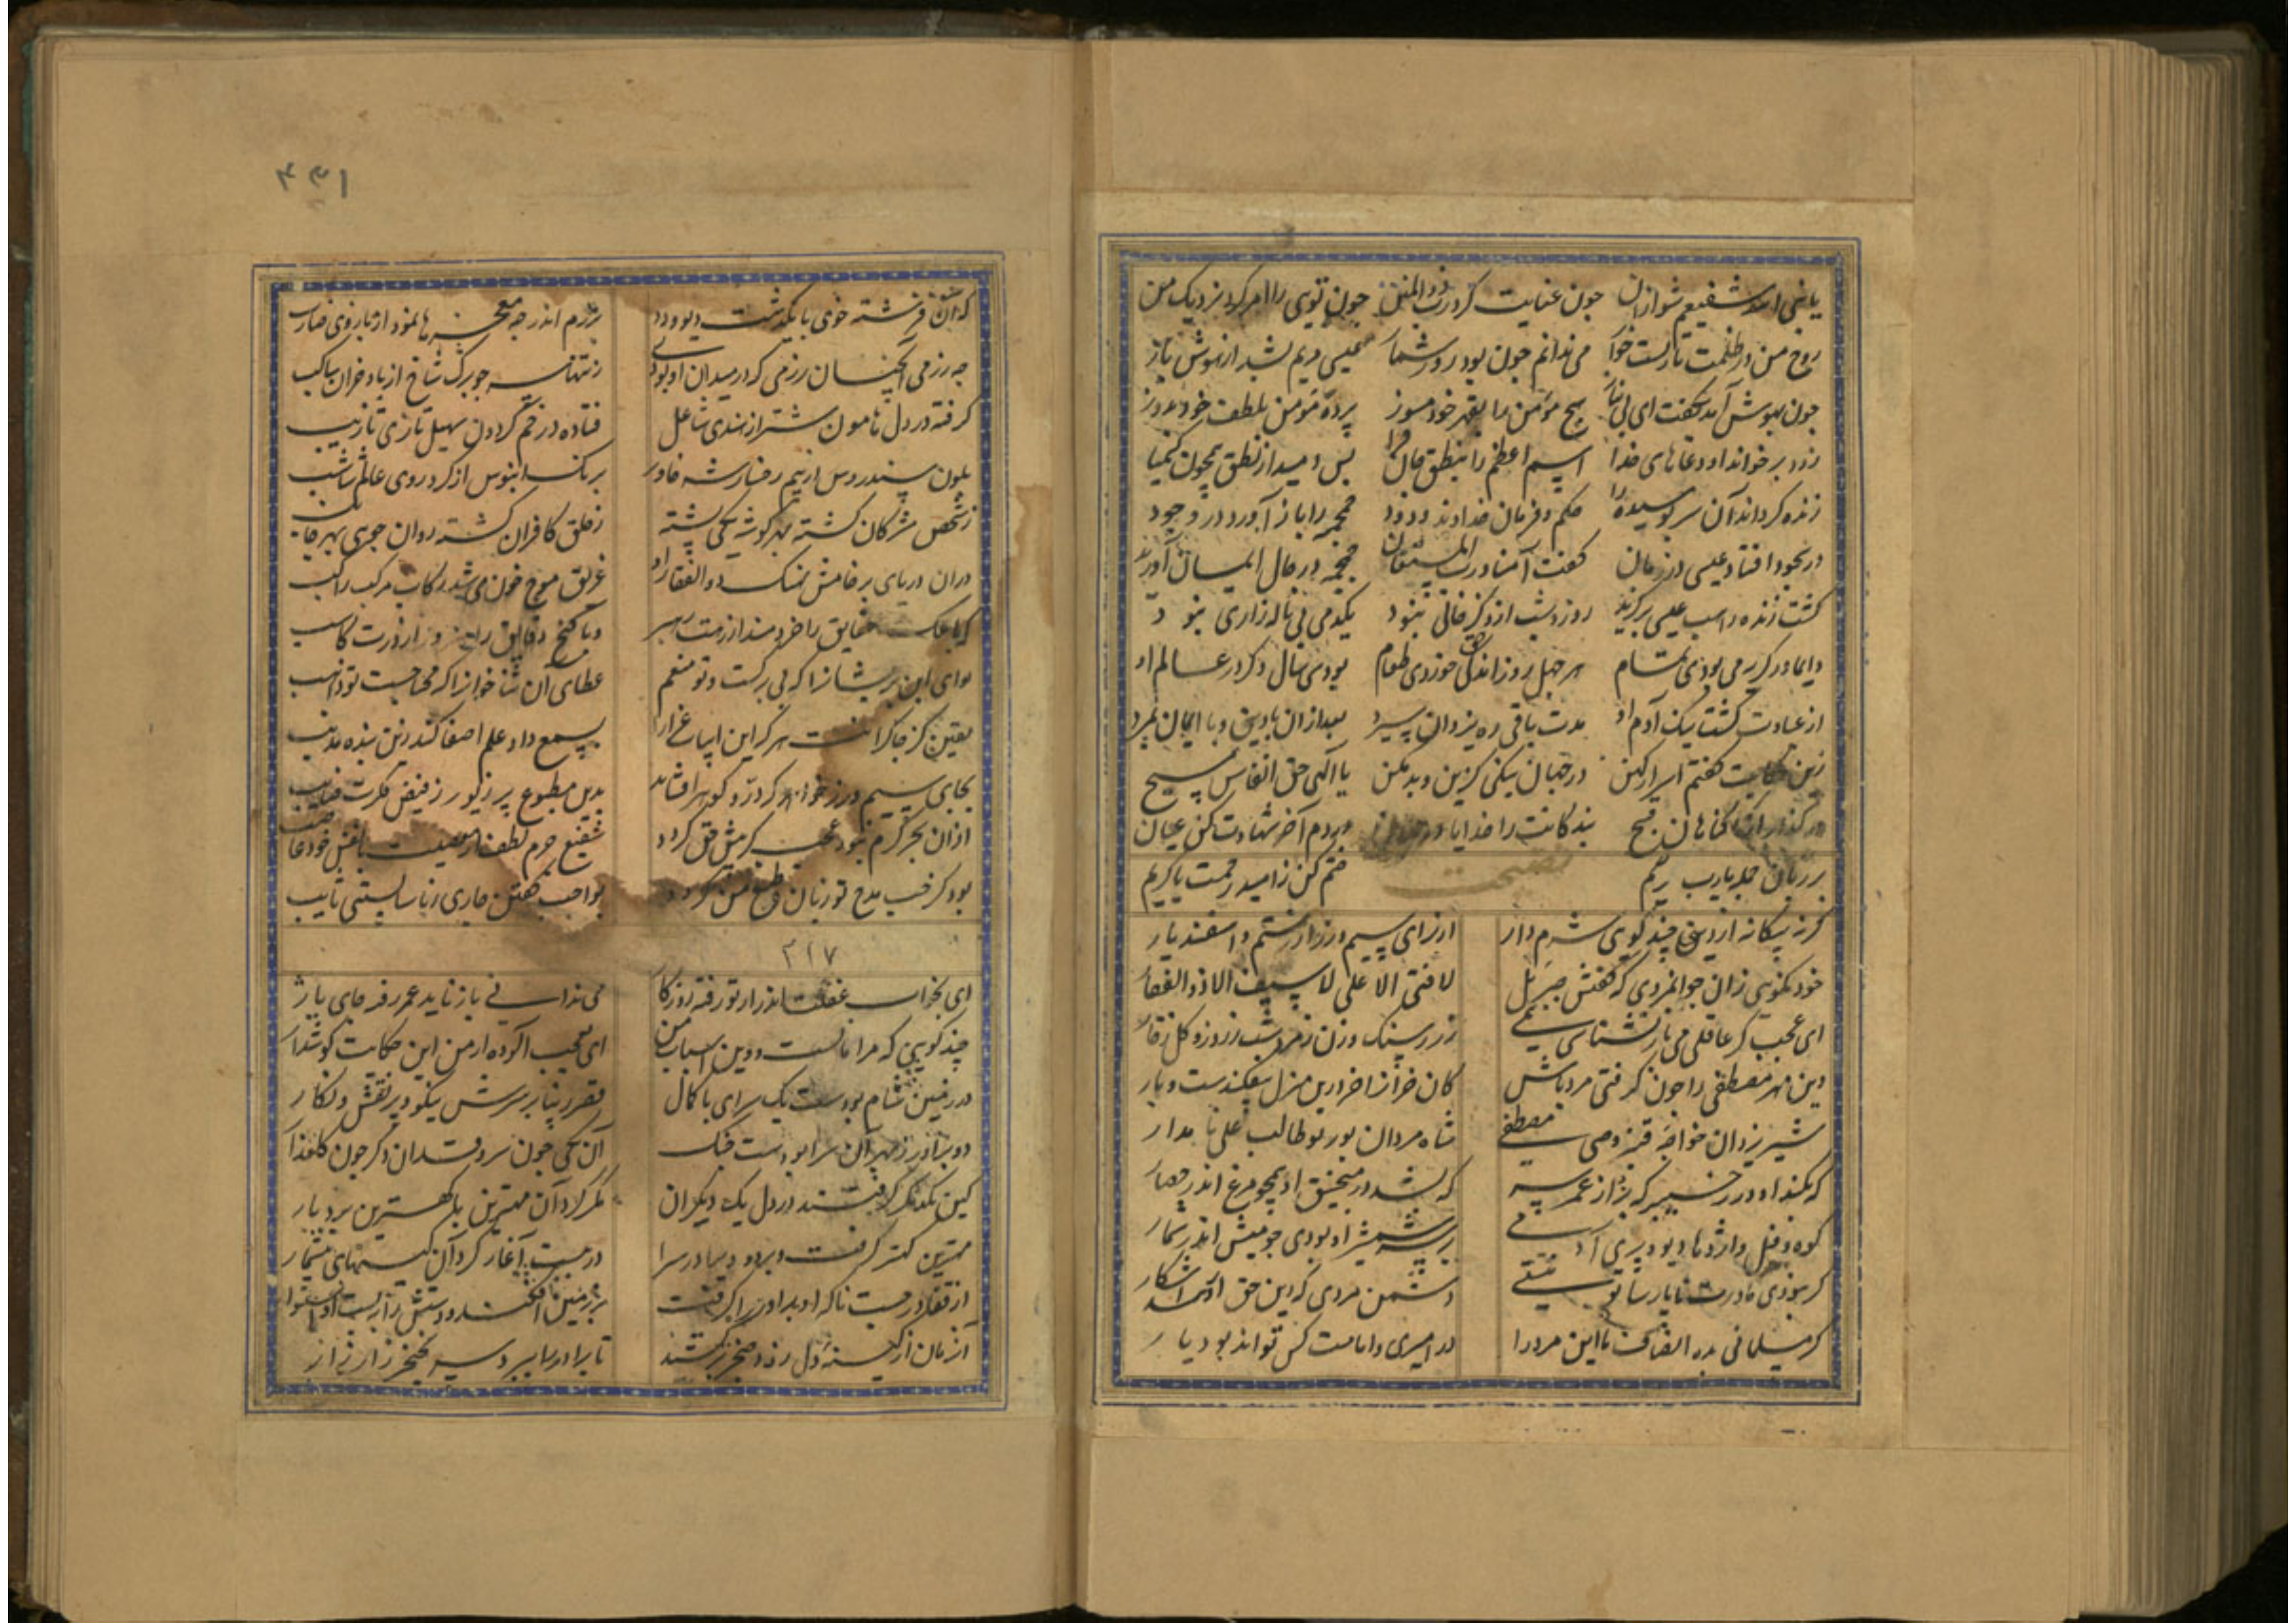 یا نبی الله شفیعم شو ازان چون عنایت کرد رب ذو المنن چون توی را امر کرد نزدیک من
روح من در ظلمت تارست خوار می ندانم چون بود روز شما عیسی مریم بشد از هوش باز
چون بهوش آمد بگفت ای بی نیاز هیچ مؤمن را بقهر خود مسوز پردهٔ مؤمن بلطف خود بدوز
زود برخواند او دعاهای خدا اسم اعظم را بنطق حال پس دمید از نطق همچون کیمیا
زنده گرداند آن سر پوسیده را حکم و فرمان خداوند ودود جمجمه را باز آورد در وجود
در سجود افتاد عیسی در زمان گفت آمنا و رب المستعان جمجمه در حال ایمان آورید
گشت زنده عیسی برگزید روز و شب از ذکر خالی نبود یکدمی بی ناله زاری نبود
دایما در گریه می بودی تمام هر چهل روز اندکی خوردی طعام بودی سال دگر در عالم او
از عبادت گشت نیک آدم او مدت باقی ره یزدان سپرد بعد ازان با دین و با ایمان بمرد
زین حکایت گفتم اسرار کهن در جهان نیکی گزین و بد مکن یا الهی حق انفاس مسیح
در گذر از گناهان قبیح بندگانت را خدایا در دم آخر شهادت کن عیان
بر زبان جمله یا رب رحیم ختم کن زامید رحمت یا کریم
نصیحت
گرنه بیگانه از دین چند گوی شرم دار از برای سیم و زر از رستم و اسفندیار
خود نگوئی زان جوانمردی که گفتش جبرئیل لا فتی الا علی لا سیف الا ذو الفقار
ای عجب گر عاقلی می باز نشناسی همی زر ز سنگ و زن ز مرد و شب ز روز و گل ز خار
دین مهر مصطفی را چون گرفتی مرد باش کان خران را خر درین منزل بیفکندست و بار
شیر یزدان خواجهٔ قنبر وصی مصطفی شاه مردان پور بو طالب علی نامدار
که بکند او در ز خیبر که نژاز عمر سپه که شد در منجنیق او همچو مرغ اندر حصار
کوه و فیل و اژدها و دیو و پری آدمی پیش شمشیر او بودی چو میش اندر شمار
گر نبودی مادرت ناپارسا تو نیستی دشمن مردی که دین حق ازو شد آشکار
گر مسلمانی بده انصاف با این مرد را در امیری و امامت کس تواند بود یار
۴۳۱
که آن فرشته خوی با بگذشت دیو و دد برزم اندر چه معجزها نمود از بازوی ضارب
چه رزمی آنچنان رزمی که در میدان او بودی ز تنها سر چو برگ شاخ از باد خزان ساکب
گرفته در دل هامون شتر از هندی شاعل فتاده در خم گردون سهیل تازی تازیب
بلون سندروس از بیم رخسار شه خاور برنگ ابنوس از گرد روی عالم شاهب
ز شخص مشرکان گشته بهر گوشه یکی پشته ز حلق کافران گشته روان جوی بهر جانب
دران دریای بر خامش نهنگ ذو الفقار او غریق موج خون می شد رکاب مرکب راکب
حقایق را خردمند از دمت رهبر و یا گنج دقایق را هنرور از درت کاسب
نوای این پریشان را که بی برگست و تو منعم عطای آن ثناخوان را که محتاجست تو واهب
یقین کز چاکرانت هر که این ابیات غرا را بسمع داد و علم اصغا کند زین بنده مذنب
بجای سیم و زر خواهد که در و گوهر افشاند بدین مطبوع پر زیور ز فیض فکرت صایب
ازان بحر کرم نبود عجب کرمش قبل گردد شفیع جرم لطف از معصیت با فضل خود غاصب
بود کز خبب مدح تو زبان و طبع من گردد بواجب گفتن جاری ز ناشایستنی تایب
۲۱۷
ای بخواب غفلت اندر از تو رفته روزگار می ندانی باز ناید عمر رفته جای یار
چند گویی که مرا مالست و دین اسباب من ای بعیب آلوده از من این حکایت گوش دار
در زمین شام بودست یک سرای باکمال قصر و بنا بر سرش نیکو و پر نقش و نگار
دو برادر بهر آن سرا بودست جنگ آن یکی چون سرو قد آن دگر چون گلعذار
کین یکدیگر گرفتند در دل یک دیگران مکر کرد آن مهترین با کهترین بردبار
مهترین کهتر گرفت و برد و در سرا در مبیت آغاز کرد آن کینهای بیشمار
از قفا درجست ناگه او برادر را گرفت بر زمینش افکند و دستش را ببست او استوار
آن زمان از کینهٔ دل زود خنجر برکشید تا برادر را ببرد سر بخنجر زار زار